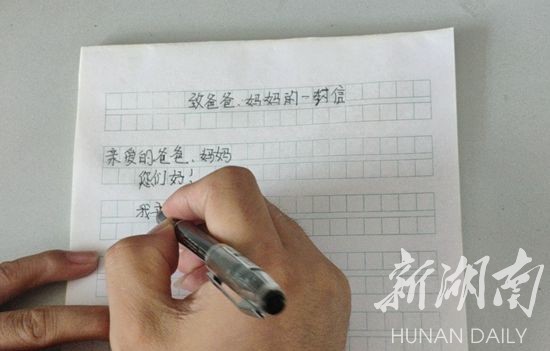 致爸爸、妈妈的一封信
亲爱的爸爸、妈妈
您们好!
我
新湖南
HUNAN DAILY